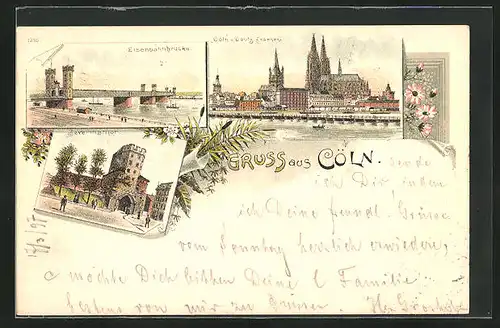 Eisenbahnbrücke.
Cöln v. Deutz gesehen
GRUSS aus CÖLN.
sende
ich Dir indem
ich Deine freundl. Grüsse
vom Sonntag herzlich erwiedere,
möchte Dich bitten Deine l. Familie
bestens von mir zu grüssen.